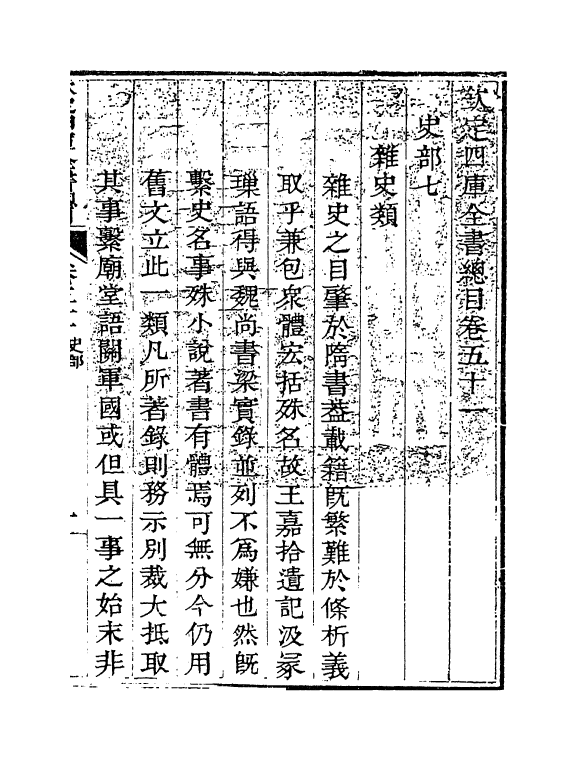 欽定四庫全書總目卷五十一
史部七
雜史類
雜史之目肇於隋書蓋載籍旣繁難於條析義
取乎兼包衆體宏括殊名故王嘉拾遺記汲冢
璅語得與魏尚書梁實錄並列不爲嫌也然旣
繫史名事殊小說著書有體焉可無分今仍用
舊文立此一類凡所著錄則務示別裁大抵取
其事繫廟堂語關軍國或但具一事之始末非